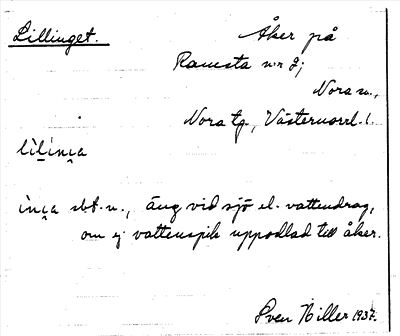 Lillinget.
Åker på
Ramsta nr 2;
Nora sn.,
Nora tg., Västernorrl. l.
lìlínı̨a
ìnı̨a sbf. n., äng vid sjö el. vattendrag,
om ej vattensjuk uppodlad till åker.
Sven Hiller 1937.